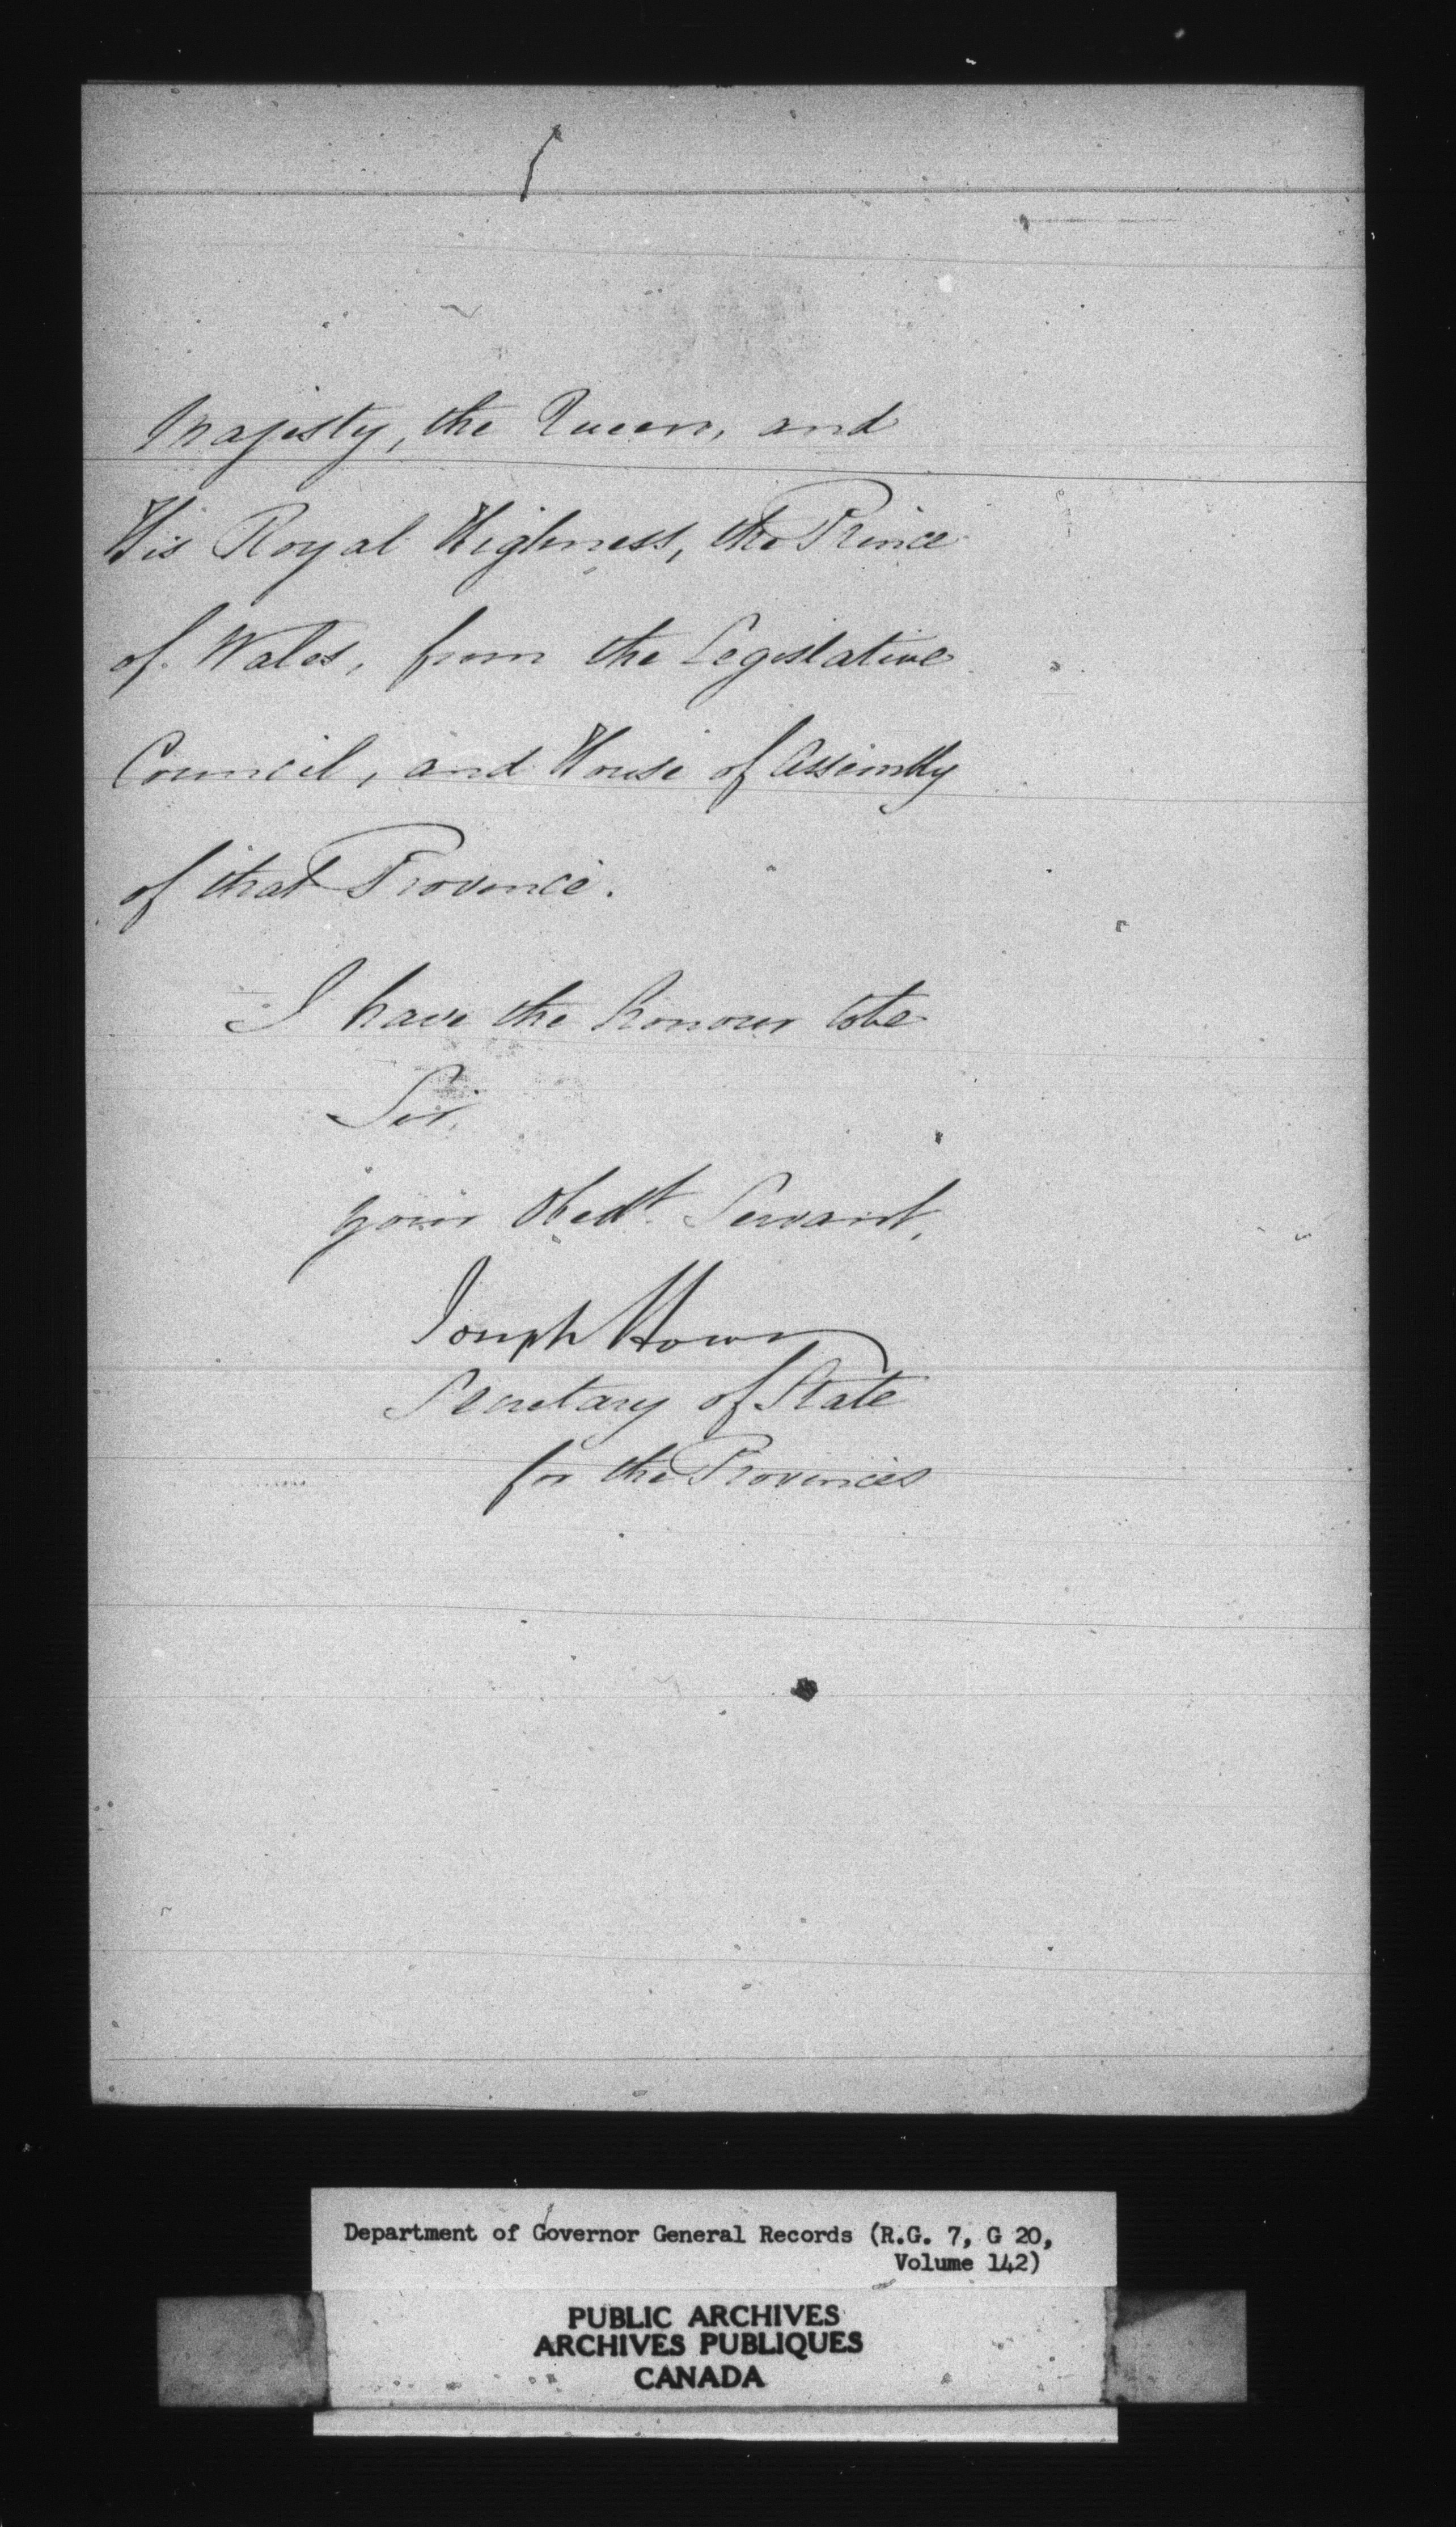 Majesty, the Queen, and
His Royal Highness, the Prince
of Wales, from the Legislative
Council, and House of Assembly
of that Province.
I have the honour to be
Sir,
your Obedt. Servant,
Joseph Howe
Secretary of State
for the Provinces
Department of Governor General Records (R.G. 7, G 20,
Volume 142)
PUBLIC ARCHIVES
ARCHIVES PUBLIQUES
CANADA